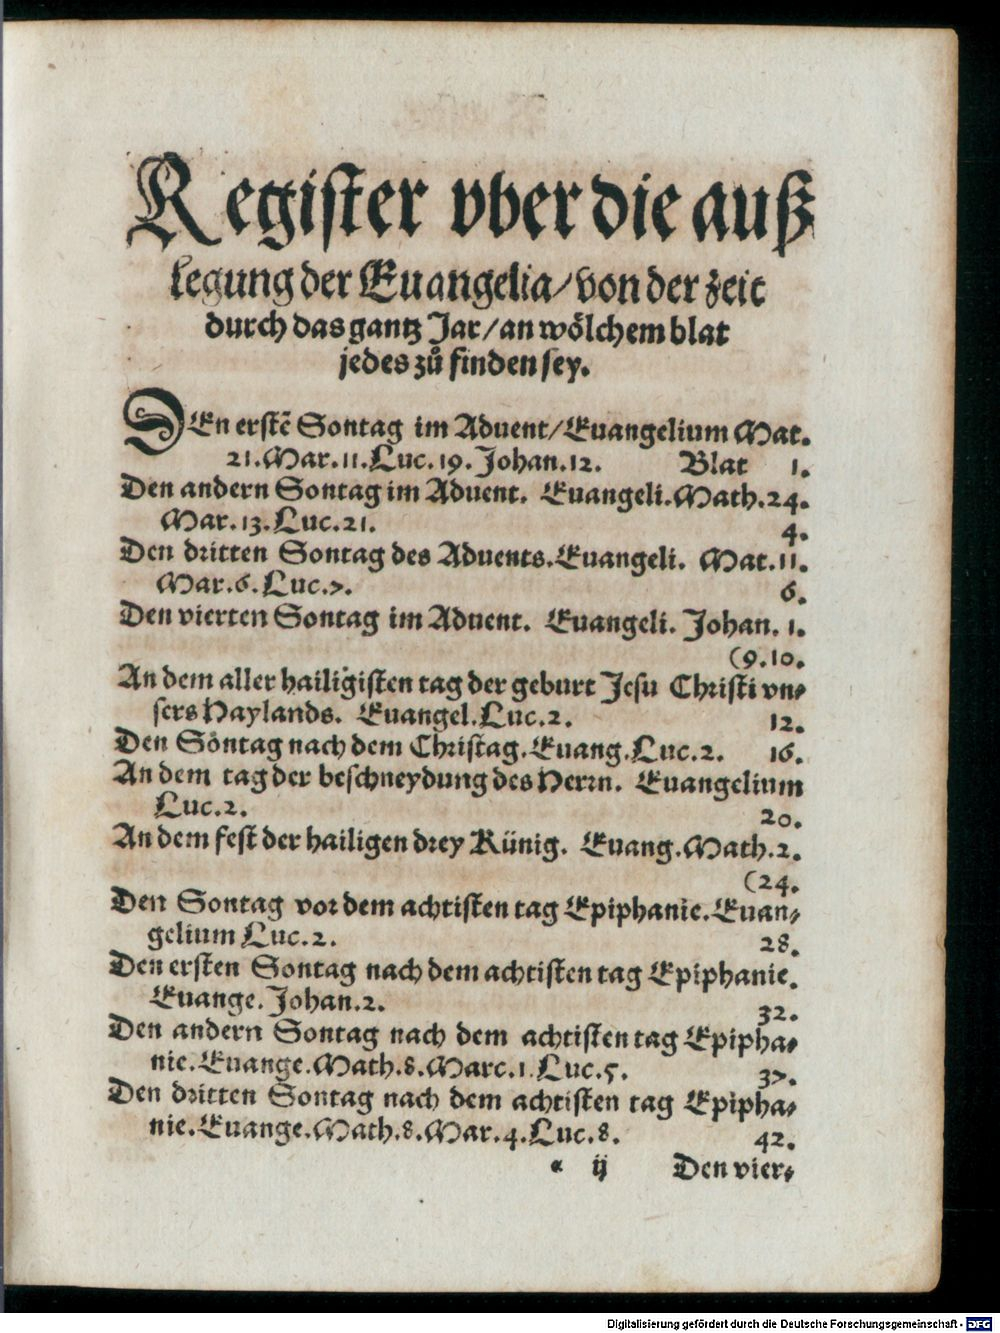 Register vber die auß
legung der Euangelia/von der zeit
durch das gantz Jar/an woͤlchem blat
jedes zuͦ finden sey.
DEn erstẽ Sontag im Aduent/Euangelium Mat.
21.Mar.11.Luc.19.Johan.12. Blat 1.
Den andern Sontag im Aduent. Euangeli.Math.24.
Mar.13.Luc.21. 4.
Den dritten Sontag des Aduents.Euangeli. Mat.11.
Mar.6.Luc.7. 6.
Den vierten Sontag im Aduent. Euangeli. Johan. 1.
(9.10.
An dem aller hailigisten tag der geburt Jesu Christi vn⸗
sers Haylands. Euangel.Luc.2. 12.
Den Soñtag nach dem Christag.Euang.Luc.2. 16.
An dem tag der beschneydung des Herrn. Euangelium
Luc.2. 20.
An dem fest der hailigen drey Künig. Euang.Math.2.
(24.
Den Sontag vor dem achtisten tag Epiphanie.Euan⸗
gelium Luc.2. 28.
Den ersten Sontag nach dem achtisten tag Epiphanie.
Euange.Johan.2. 32.
Den andern Sontag nach dem achtisten tag Epipha⸗
nie.Euange.Math.8.Marc.1.Luc.5. 37.
Den dritten Sontag nach dem achtisten tag Epipha⸗
nie.Euange.Math.8.Mar.4.Luc.8. 42.
a ij Den vier⸗
Digitalisierung gefördert durch die Deutsche Forschungsgemeinschaft - DFG